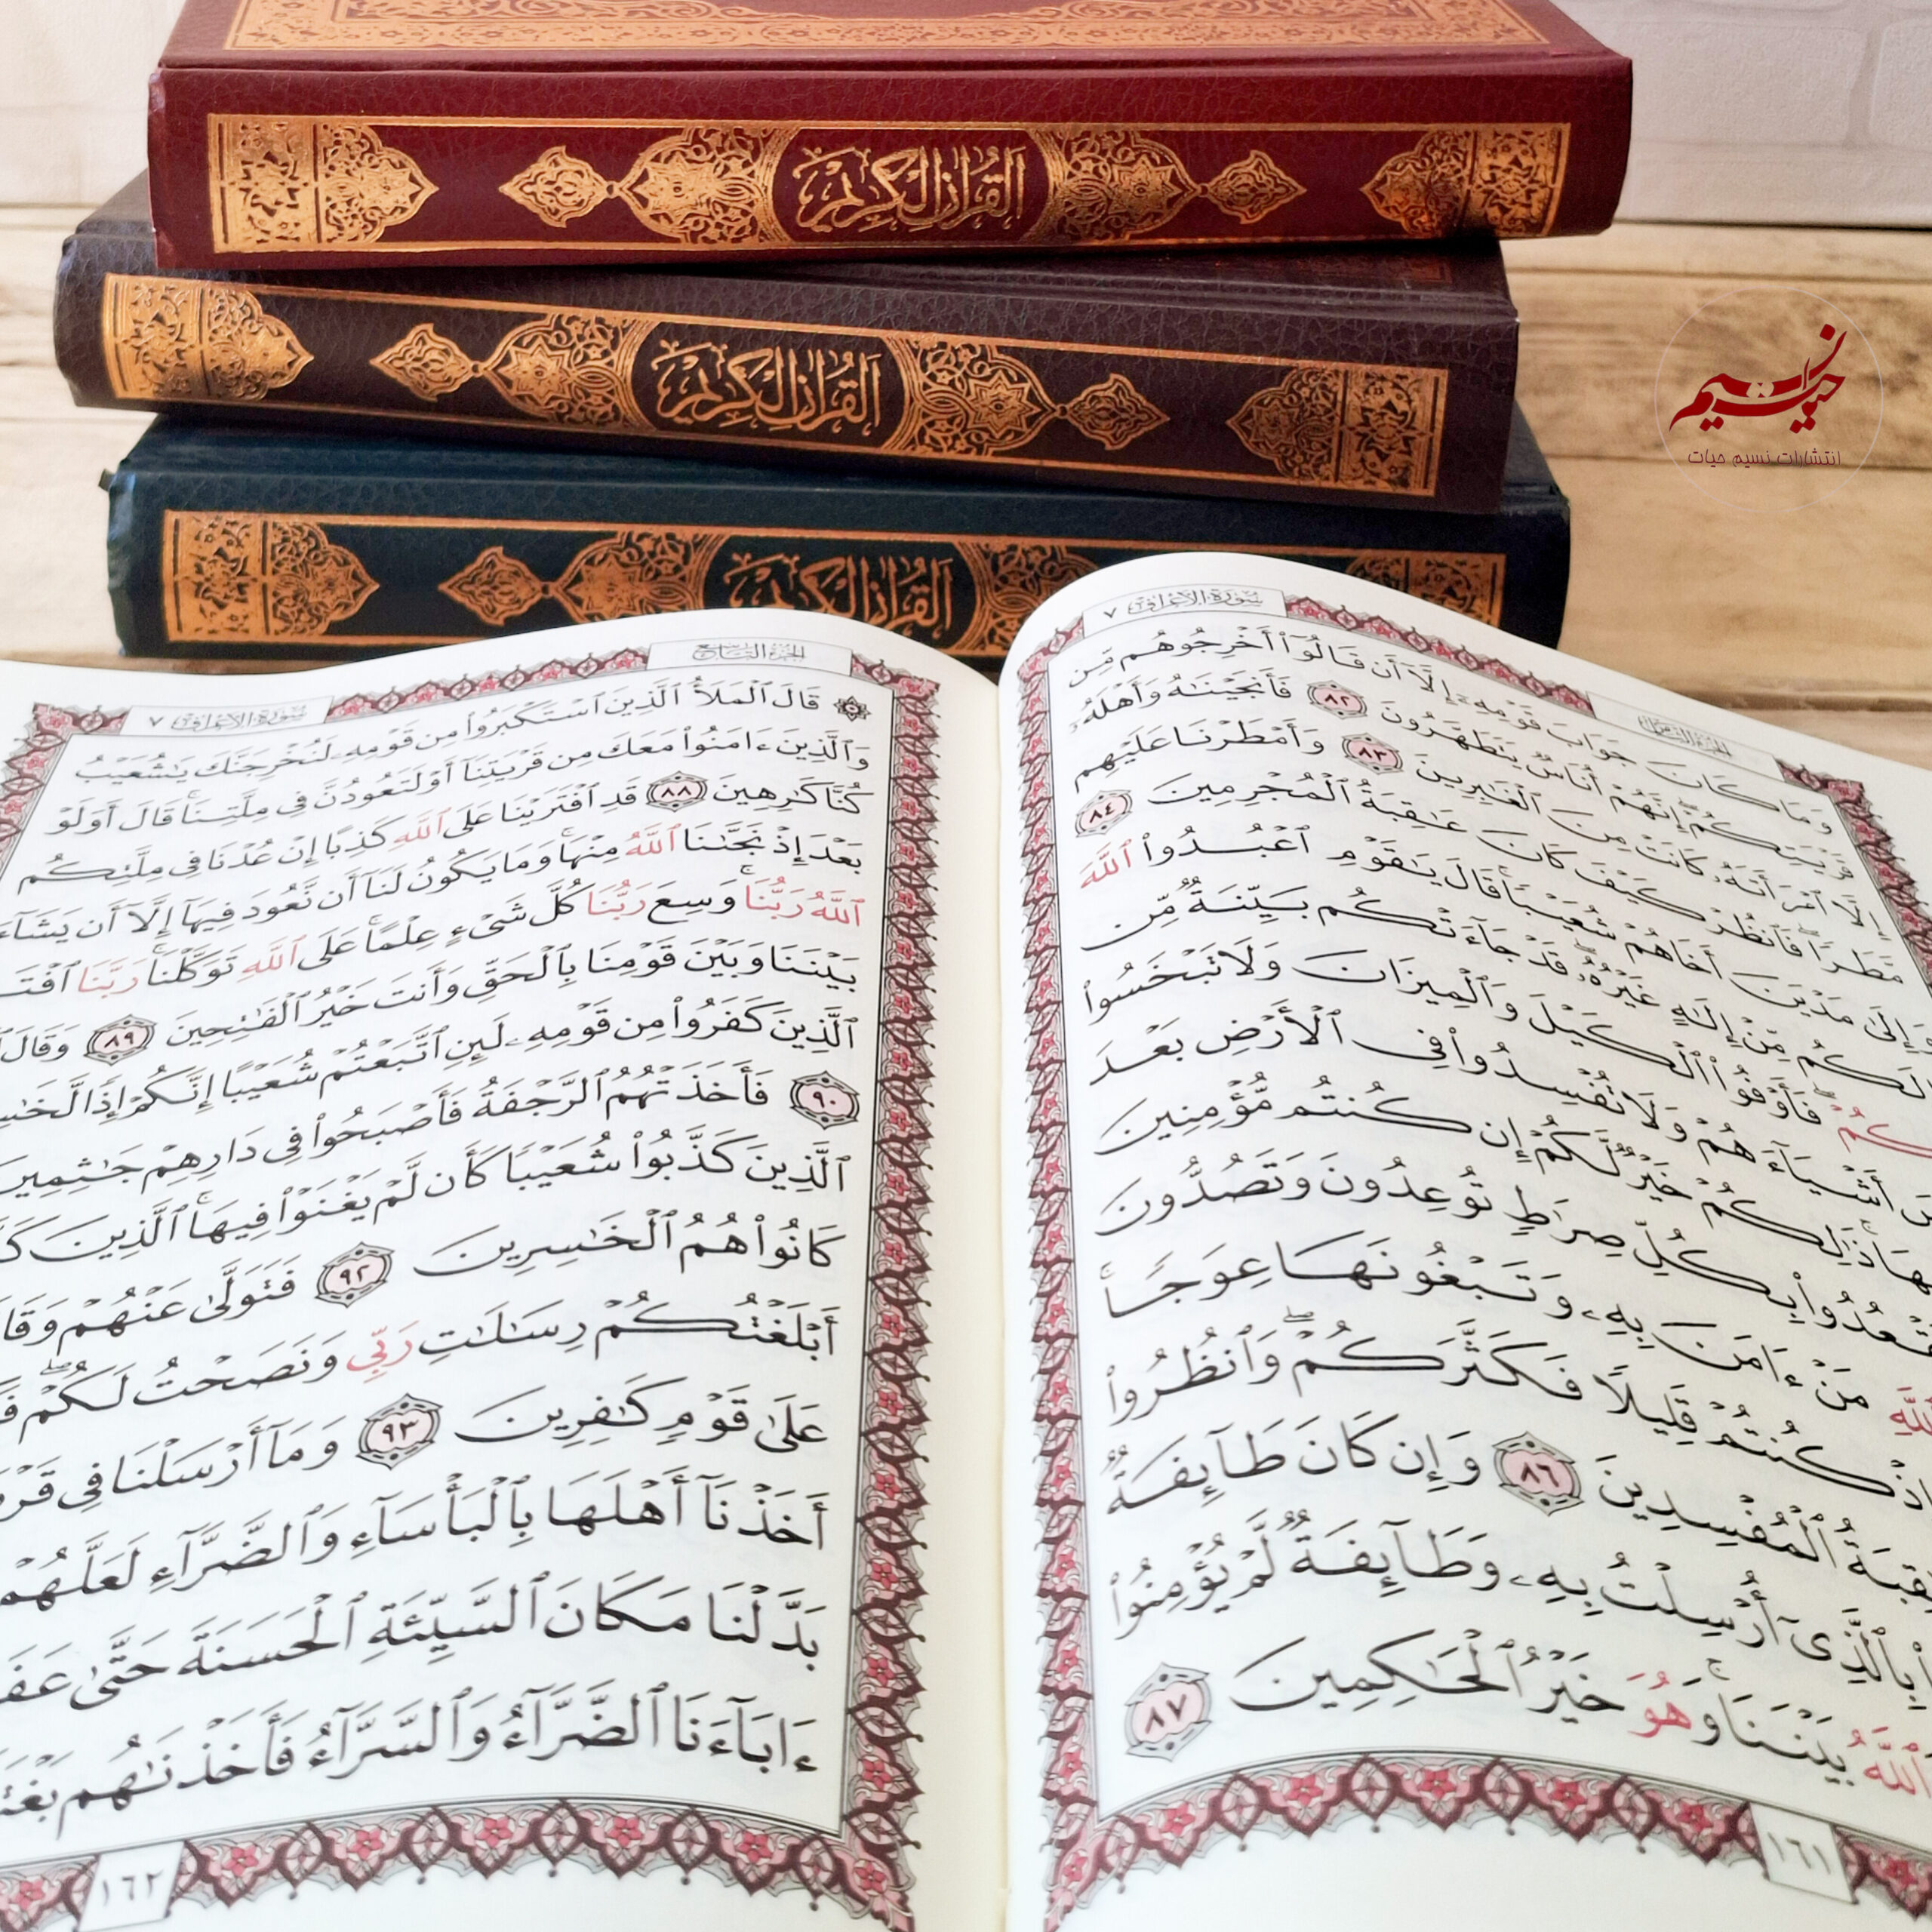 القرآن الكريم
القرآن الكريم
القرآن الكريم
نسیم حیات
انتشارات نسیم حیات
سورة الأعراف ٧
الجزء الثامن
وَمَا كَانَ جَوَابَ قَوْمِهِۦٓ إِلَّآ أَن قَالُوٓا۟ أَخْرِجُوهُم مِّن
قَرْيَتِكُمْ ۖ إِنَّهُمْ أُنَاسٌ يَتَطَهَّرُونَ ٨٢ فَأَنجَيْنَـٰهُ وَأَهْلَهُۥٓ
إِلَّا ٱمْرَأَتَهُۥ كَانَتْ مِنَ ٱلْغَـٰبِرِينَ ٨٣ وَأَمْطَرْنَا عَلَيْهِم
مَّطَرًا ۖ فَٱنظُرْ كَيْفَ كَانَ عَـٰقِبَةُ ٱلْمُجْرِمِينَ ٨٤
وَإِلَىٰ مَدْيَنَ أَخَاهُمْ شُعَيْبًا ۗ قَالَ يَـٰقَوْمِ ٱعْبُدُوا۟ ٱللَّهَ
لَكُم مِّنْ إِلَـٰهٍ غَيْرُهُۥ ۖ قَدْ جَآءَتْكُم بَيِّنَةٌ مِّن
كُمْ ۖ فَأَوْفُوا۟ ٱلْكَيْلَ وَٱلْمِيزَانَ وَلَا تَبْخَسُوا۟
أَشْيَآءَهُمْ وَلَا تُفْسِدُوا۟ فِى ٱلْأَرْضِ بَعْدَ
ذَٰلِكُمْ خَيْرٌ لَّكُمْ إِن كُنتُم مُّؤْمِنِينَ
بِكُلِّ صِرَٰطٍ تُوعِدُونَ وَتَصُدُّونَ
ٱللَّهِ مَنْ ءَامَنَ بِهِۦ وَتَبْغُونَهَا عِوَجًا ۚ
كُنتُمْ قَلِيلًا فَكَثَّرَكُمْ ۖ وَٱنظُرُوا۟
ٱلْمُفْسِدِينَ ٨٦ وَإِن كَانَ طَآئِفَةٌ
بِٱلَّذِىٓ أُرْسِلْتُ بِهِۦ وَطَآئِفَةٌ لَّمْ يُؤْمِنُوا۟
ٱللَّهُ بَيْنَنَا ۚ وَهُوَ خَيْرُ ٱلْحَـٰكِمِينَ ٨٧
١٦١
الجزء التاسع
سورة الأعراف ٧
قَالَ ٱلْمَلَأُ ٱلَّذِينَ ٱسْتَكْبَرُوا۟ مِن قَوْمِهِۦ لَنُخْرِجَنَّكَ يَـٰشُعَيْبُ
وَٱلَّذِينَ ءَامَنُوا۟ مَعَكَ مِن قَرْيَتِنَآ أَوْ لَتَعُودُنَّ فِى مِلَّتِنَا ۚ قَالَ أَوَلَوْ
كُنَّا كَـٰرِهِينَ ٨٨ قَدِ ٱفْتَرَيْنَا عَلَى ٱللَّهِ كَذِبًا إِنْ عُدْنَا فِى مِلَّتِكُم
بَعْدَ إِذْ نَجَّىٰنَا ٱللَّهُ مِنْهَا ۚ وَمَا يَكُونُ لَنَآ أَن نَّعُودَ فِيهَآ إِلَّآ أَن يَشَآءَ
ٱللَّهُ رَبُّنَا ۚ وَسِعَ رَبُّنَا كُلَّ شَىْءٍ عِلْمًا ۚ عَلَى ٱللَّهِ تَوَكَّلْنَا ۚ رَبَّنَا
بَيْنَنَا وَبَيْنَ قَوْمِنَا بِٱلْحَقِّ وَأَنتَ خَيْرُ ٱلْفَـٰتِحِينَ ٨٩ وَقَالَ
ٱلَّذِينَ كَفَرُوا۟ مِن قَوْمِهِۦ لَئِنِ ٱتَّبَعْتُمْ شُعَيْبًا إِنَّكُمْ إِذًا
٩٠ فَأَخَذَتْهُمُ ٱلرَّجْفَةُ فَأَصْبَحُوا۟ فِى دَارِهِمْ جَـٰثِمِينَ
ٱلَّذِينَ كَذَّبُوا۟ شُعَيْبًا كَأَن لَّمْ يَغْنَوْا۟ فِيهَا ۚ ٱلَّذِينَ
كَانُوا۟ هُمُ ٱلْخَـٰسِرِينَ ٩٢ فَتَوَلَّىٰ عَنْهُمْ وَقَا
أَبْلَغْتُكُمْ رِسَـٰلَـٰتِ رَبِّى وَنَصَحْتُ لَكُمْ ۖ
عَلَىٰ قَوْمٍ كَـٰفِرِينَ ٩٣ وَمَآ أَرْسَلْنَا فِى
أَخَذْنَآ أَهْلَهَا بِٱلْبَأْسَآءِ وَٱلضَّرَّآءِ لَعَلَّهُمْ
بَدَّلْنَا مَكَانَ ٱلسَّيِّئَةِ ٱلْحَسَنَةَ حَتَّىٰ
ءَابَآءَنَا ٱلضَّرَّآءُ وَٱلسَّرَّآءُ فَأَخَذْنَـٰهُم
١٦٢